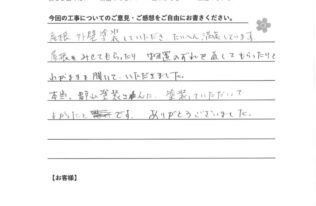 今回の工事についてのご意見・ご感想をご自由にお書きください。
屋根 外壁塗装していただき たいへん満足しています。
屋根をみせてもらったり 物置のずれを直してもらったりと
わがままを聞いていただきました。
本当、郡山塗装さんに 塗装していただいて
よかったです。 ありがとうございました。
【お客様】